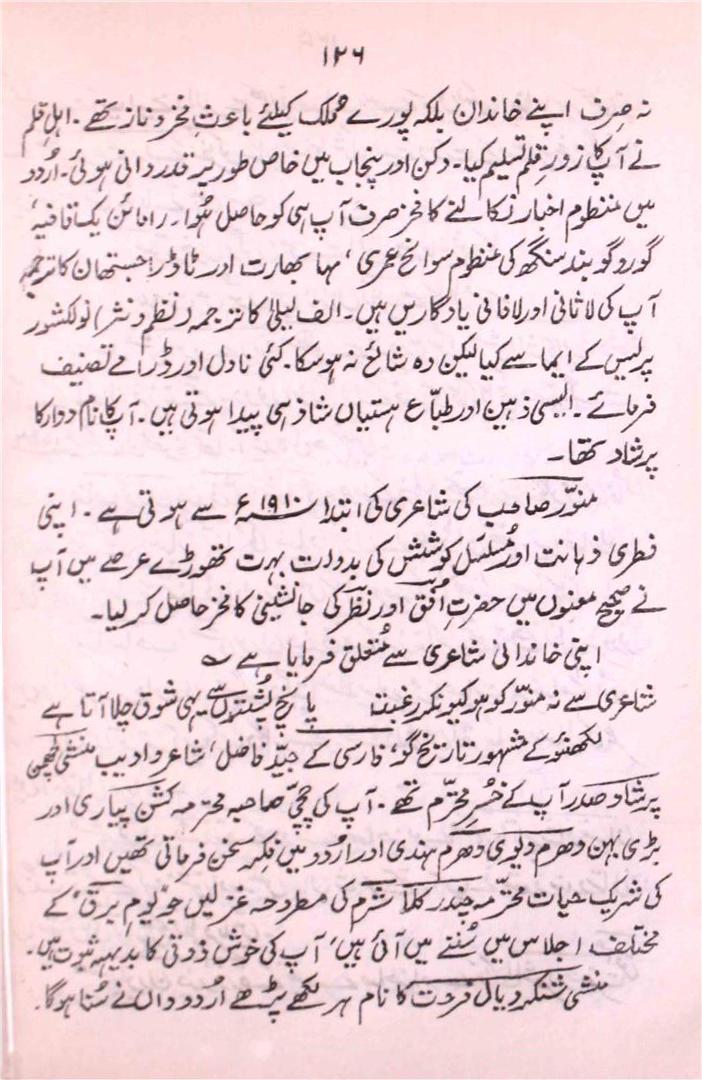 ۱۲۶
نہ صرف اپنے خاندان بلکہ پورے مملک کیلئے باعثِ فخر و ناز تھے۔ اہلِ قلم
نے آپ کا زورِ قلم تسلیم کیا۔ دکن اور پنجاب میں خاص طور پر قدر دانی ہوئی۔ اُردو
میں منظوم اخبار نکالنے کا فخر صرف آپ ہی کو حاصل ہُوا۔ رامائن یک قافیہ،
گورو گوبند سنگھ کی منظوم سوانح عمری، مہا بھارت اور ٹاڈ راجستھان کا ترجمہ
آپ کی لاثانی اور لافانی یادگاریں ہیں۔ الف لیلیٰ کا ترجمہ (نظم و نثر) نولکشور
پرلیس کے ایما سے کیا لیکن وہ شائع نہ ہو سکا۔ کئی ناول اور ڈرامے تصنیف
فرمائے۔ ایسی ذہین اور طبّاع ہستیاں شاذ ہی پیدا ہوتی ہیں۔ آپ کا نام دوارکا
پرشاد تھا۔
منوّر صاحب کی شاعری کی ابتدا ۱۹۱۰ء سے ہوتی ہے۔ اپنی
فطری ذہانت اور مُسلسل کوشش کی بدولت بہت تھوڑے عرصے میں آپ
نے صحیح معنوں میں حضرتِ اُفق اور نظر کی جانشینی کا فخر حاصل کر لیا۔
اپنی خاندانی شاعری سے مُتعلق فرمایا ہے ؎
شاعری سے نہ منوّر کو ہو کیونکر رغبت پانچ پُشتوں سے یہی شوق چلا آتا ہے
لکھنؤ کے مشہور تاریخ گو، فارسی کے جیّد فاضل، شاعر و ادیب منشی لچھمن
پرشاد صدر آپ کے خُسرِ محترم تھے۔ آپ کی چچی صاحبہ محترمہ کشن پیاری اور
بڑی بہن دھرم دیوی دھرم ہندی اور اُردو میں فکرِ سخن فرماتی تھیں اور آپ
کی شریکِ حیات محترمہ چندر کلا شرم کی مطروحہ غزلیں جو یومِ برق، کے
مختلف اجلاس میں سُننے میں آئی ہیں، آپ کی خوش ذوقی کا بدیہہ ثبوت ہیں۔
منشی شنکر دیال فرحت کا نام ہر لکھے پڑھے اُردو داں نے سُنا ہوگا۔